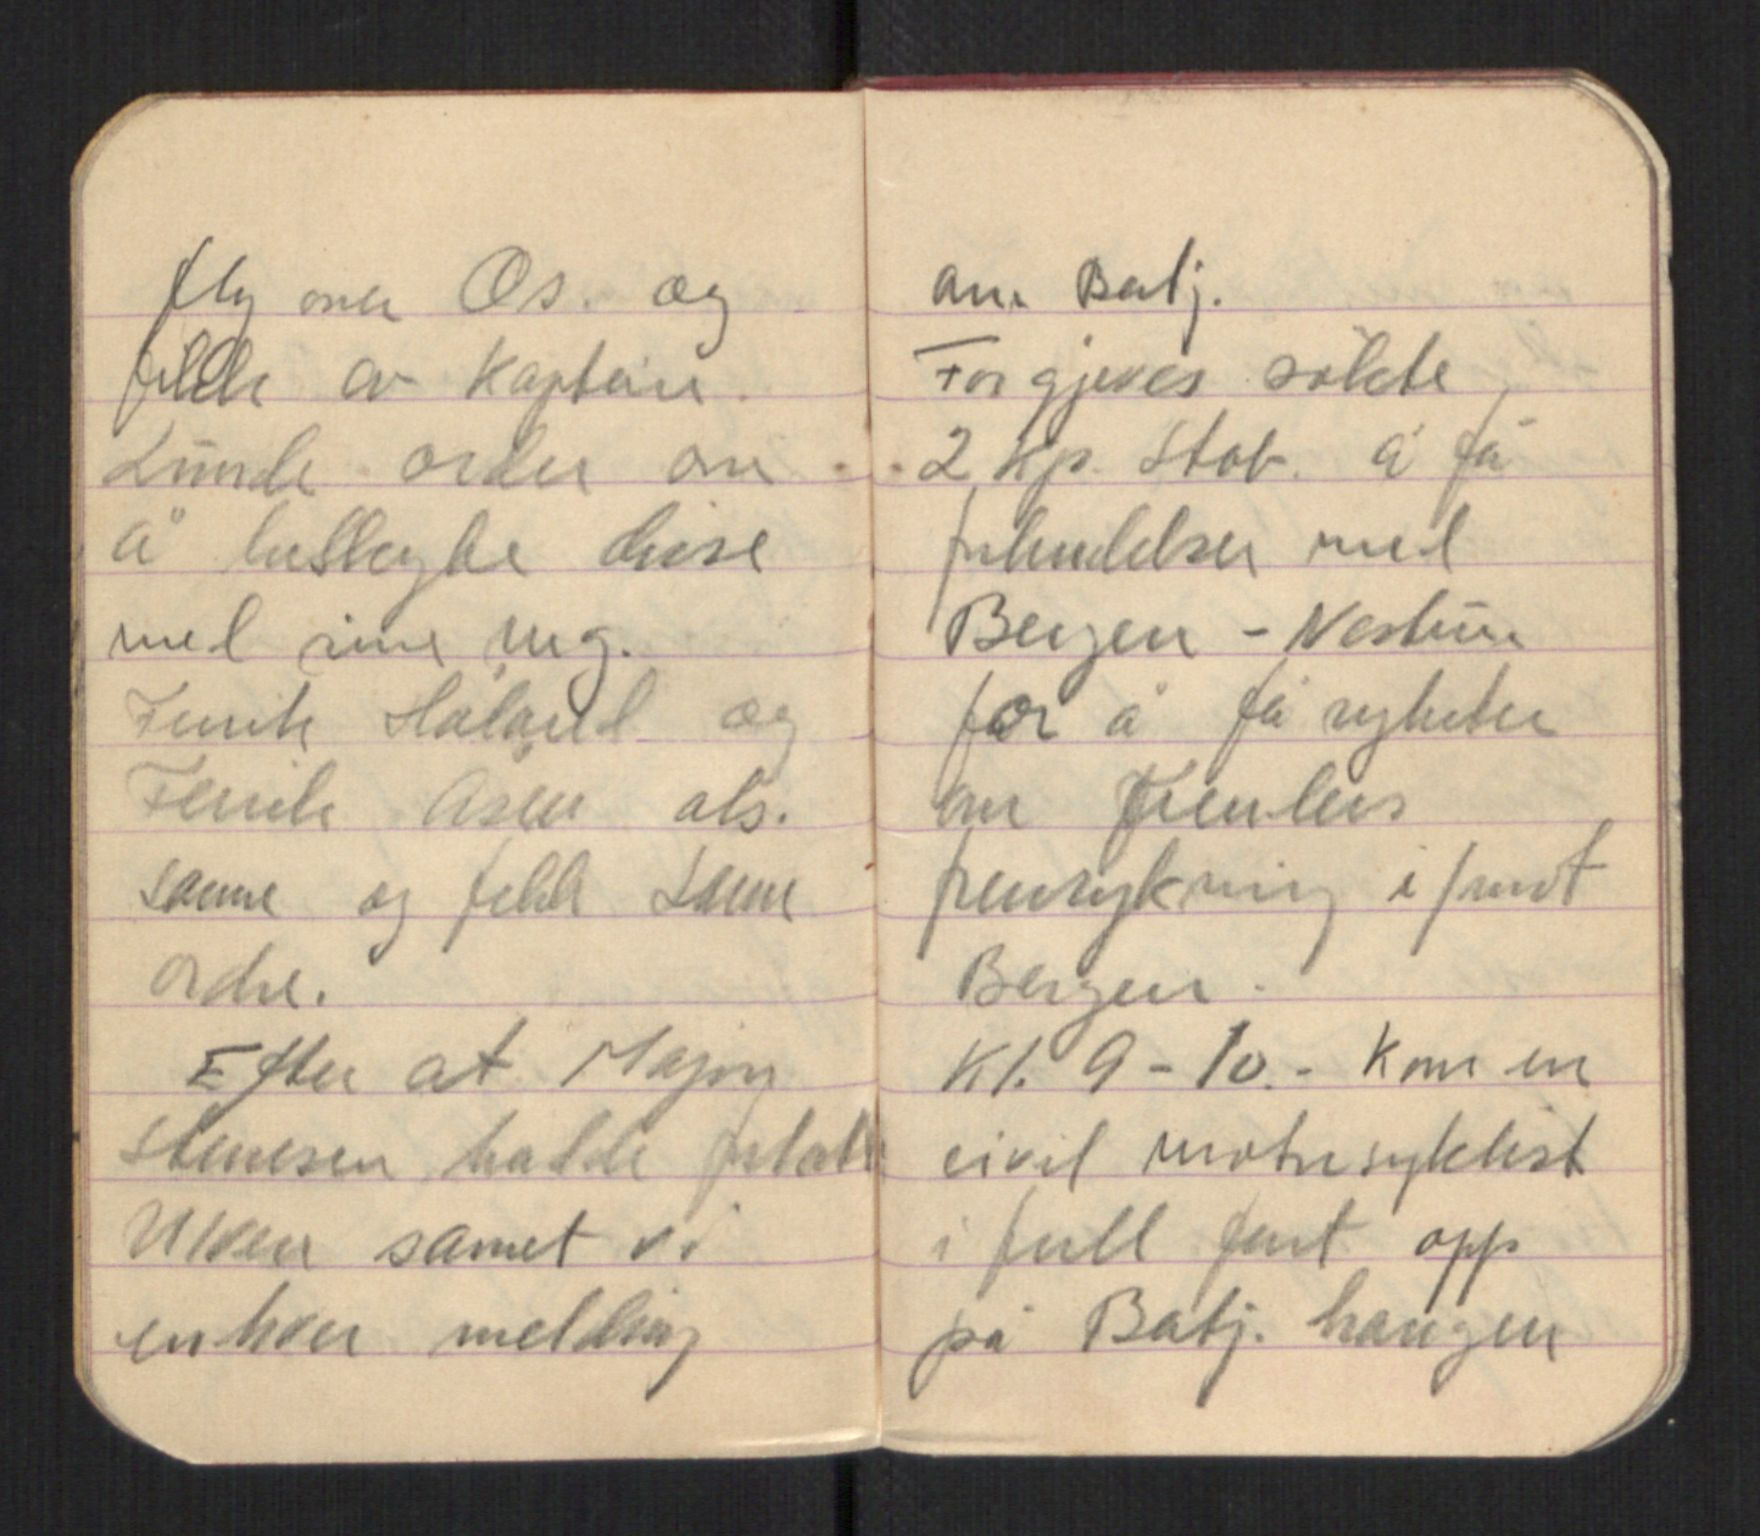 fly over Os. og
fikk av Kaptein
Lunde order om
å beskyte disse
med sine mg.
Fenrik Håland og
Fenrik Åsen obs.
samme og fikk samme
ordre.
Efter at Major
Stenersen hadde forlatt
Ulven samet vi
enhver melding
om Batj.
Forgjeves sökte
2 Kp. Stab. å få
forbindelser med
Bergen - Nestun
for å få nyheter
om fiendens
fremrykning i/mot
Bergen.
Kl. 9 - 10. - kom en
civil motorsyklist
i full fart opp
på Batj. haugen